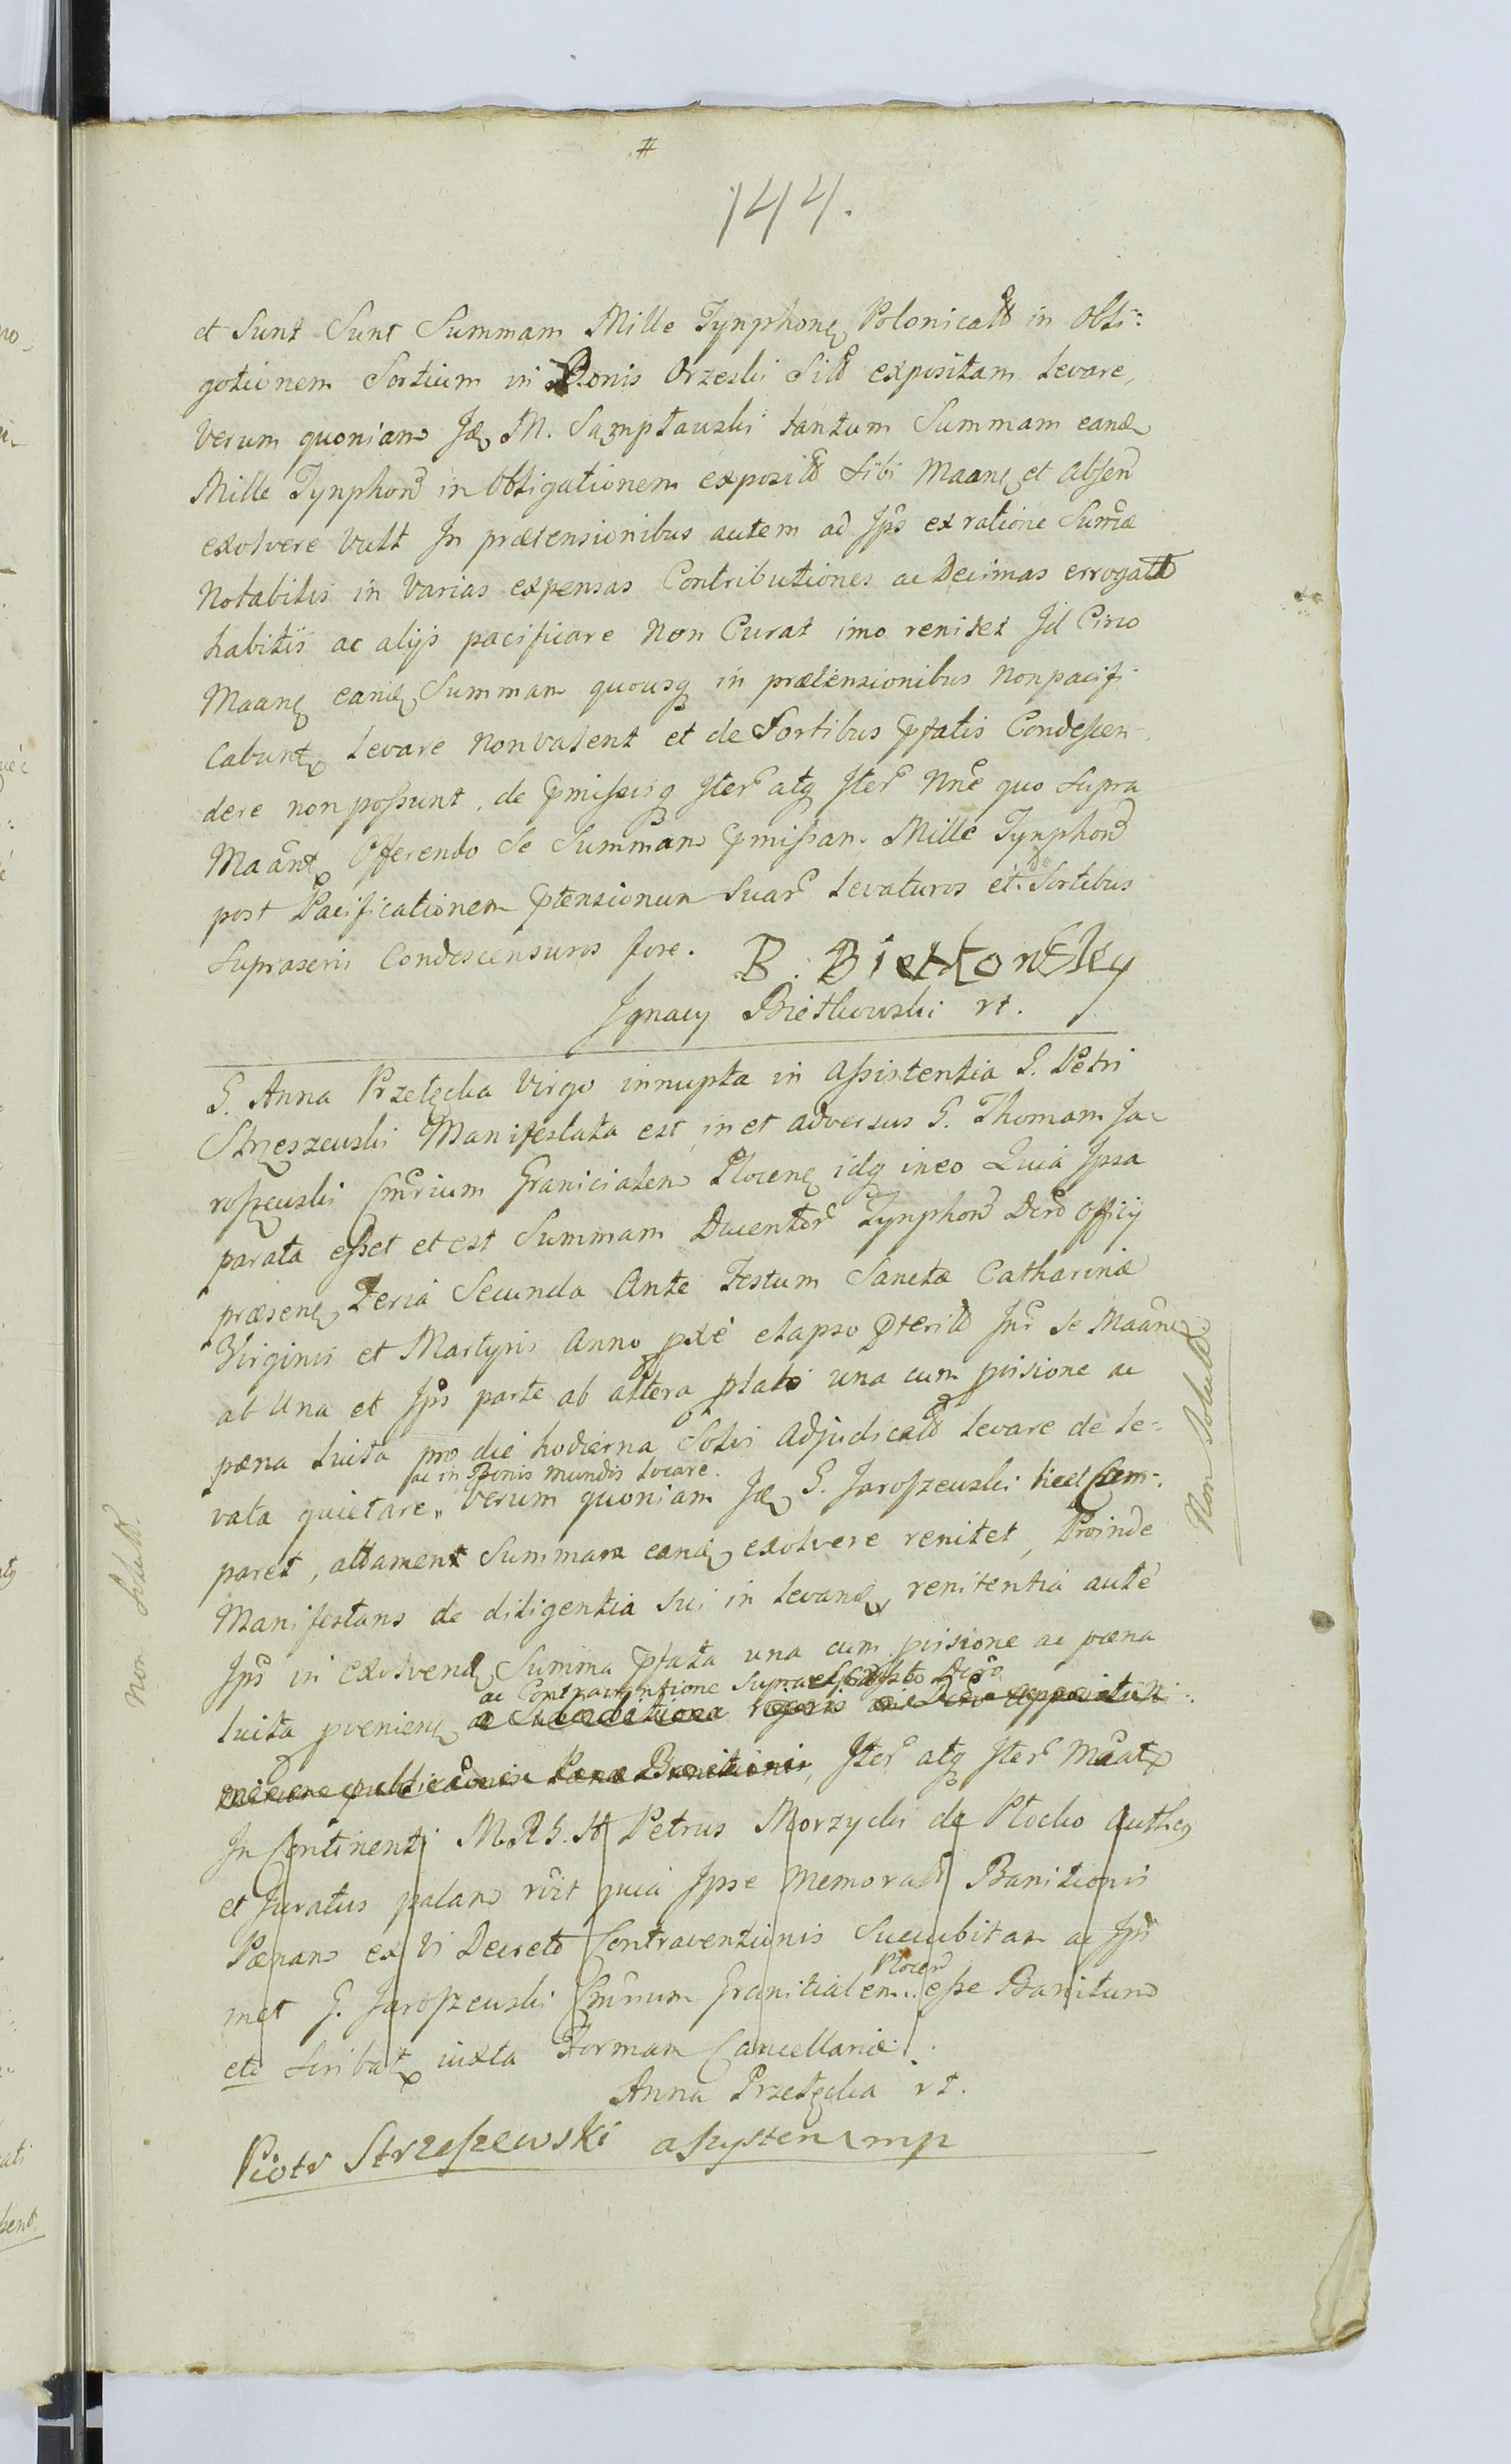 #
144.
et Sunt Sunt Summam Mille Tynphonę Polonicalð in Obli:
gotionem Sortium in Bonis Orzeski Silð expositam levare,
Verum quoniam Jdę M. Sąmpławski tantum Summam eandę
Mille Tynphonð in Obligationem exposilð sibi Maanę et absenð
exolvere Vult In prætensionibus autem ad Jps ex ratione Sumæ
Notabilis in Varias expensas Contributiones ac Decimas errogatð
habitis ac alijs pacificare Non Curat imo renitet Jd Circo
Maanę eandę Summam quousq in prætensionibus Non pacifi
Cabuntr levare Non valent et de Sortibus pfatis Condescen-
dere non possunt, de pmissisq Iter atq Iter Nne quo Supra
Maantr Offerendo Se Summam pmissam Mille Tynphonð
post Pacificationem ptensionum Suar levaturos et de Sortibus
Suprascris Condescensuros fore. B. Bietkonsky
Jgnacy Bietkowski rt.
G. Anna Przełęcka Virgo innupta in Assistentia G. Petri
Strzeszewski Manifestata est in et adversus G. Thomam Ja-
roszewski Cmrium Granicialem Plocenę idq in eo Quia Ipsa
parata esset et est Summam Ducentor Tynphonð Dcro Officij
præsenę Feria Secunda Ante Festum Sanctæ Catharinæ
Virginis et Martyris Anno pxe elapso pterilð Inr Se Maanę
ab Una et Jps parte ab altera plato una cum pvisione ac
pœna luita pro die hodierna Solvi Adjudicalð levare de le-
ac in Bonis mundis locare.
vata quietare. Verum quoniam Jdę G. Jaroszewski licet Com-
paret, attament Summam eandę exolvere renitet, Proinde
Manifestans de diligentia Sui in levandę, renitentia aute
Jps in exolvendę Summa pfata una cum pvisione ac pœna
ac Contraventione Supra Dcro
luita pvenienę
Iter atq Iter Maatr
In Continenti M. R. G. Petrus Morzycki de Plocko Authę
et Juratus palam rvit quia Ipse Memoratð Banitionis
Pœnam ex Vi Decretð Contraventionis Succubitam ac Jps
Plocenð
met G. Jaroszewski Cmrium Granitialem.. esse Banitum
etc Scribatr iuxta Formam Cancellariæ.
Anna Przełęcka rt.
Piotr Strzeszewski assysten mp
Non Solutð.
Non Solutð